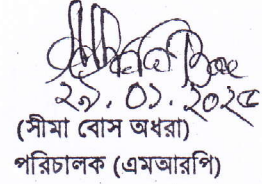 ২৯.০১.২০২৫
(সীমা বোস অধরা)
পরিচালক (এমআরপি)